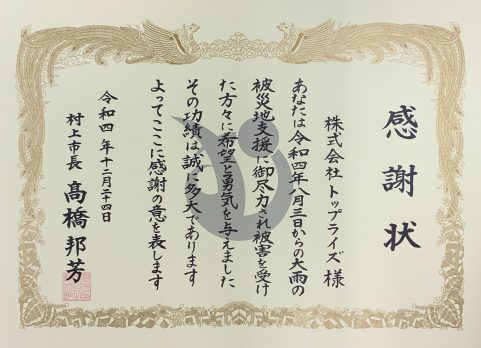 感謝状
株式会社トップライズ 様
あなたは令和四年八月三日からの大雨の
被災地支援に御尽力され被害を受け
た方々に希望と勇気を与えました
その功績は誠に多大であります
よってここに感謝の意を表します
令和四年十二月二十四日
村上市長 高橋邦芳